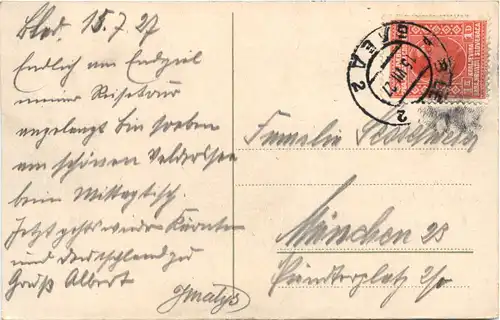 Bled. 15.7.27
Endlich am Endziel
meiner Reisetour
angelangt bin soeben
am schönen Veldessee
beim Mittagstisch.
Jetzt gehts wieder Kärnten
und Deutschland zu
Gruß Albert
BLED 2
Familie
München 23
2/0